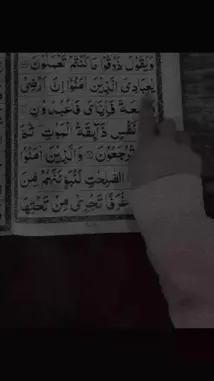 وَيَقُوْلُ ذُوْقُوْا مَا كُنْتُمْ تَعْمَلُوْنَ
يٰعِبَادِيَ الَّذِيْنَ اٰمَنُوْۤا اِنَّ اَرْضِيْ
سِعَةٌ فَاِيَّايَ فَاعْبُدُوْنِ
نَفْسٍ ذَآىِٕقَةُ الْمَوْتِ ثُمَّ
تُرْجَعُوْنَ وَالَّذِيْنَ اٰمَنُوْا
الصّٰلِحٰتِ لَنُبَوِّئَنَّهُمْ مِّنَ
غُرَفًا تَجْرِيْ مِنْ تَحْتِهَا